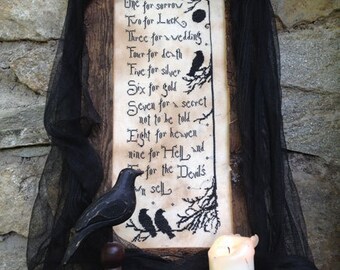 One for sorrow
Two for Luck
Three for a wedding
Four for death
Five for silver
Six for gold
Seven for a secret
not to be told
Eight for heaven
nine for Hell and
for the Devil's
n sell